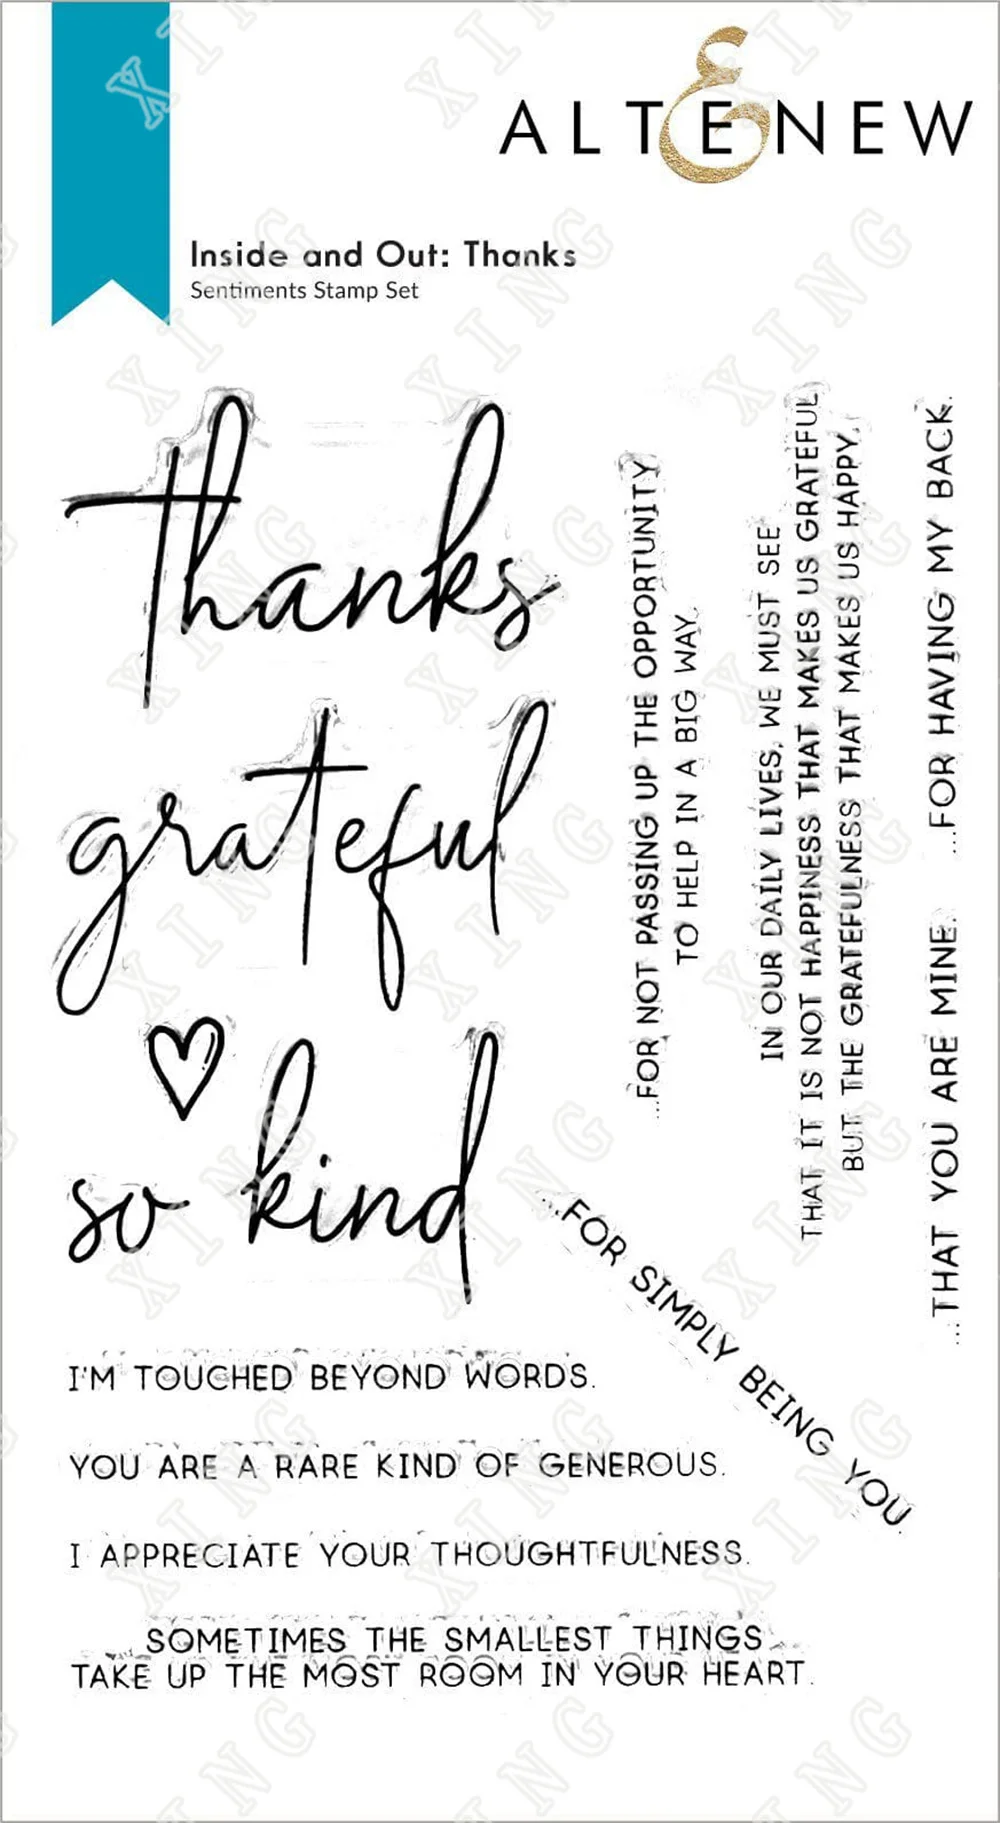 ALTENEW
Inside and Out: Thanks
Sentiments Stamp Set
thanks
grateful
so kind
...FOR NOT PASSING UP THE OPPORTUNITY
TO HELP IN A BIG WAY.
IN OUR DAILY LIVES, WE MUST SEE
THAT IT IS NOT HAPPINESS THAT MAKES US GRATEFUL
BUT THE GRATEFULNESS THAT MAKES US HAPPY.
...FOR HAVING MY BACK.
...THAT YOU ARE MINE.
...FOR SIMPLY BEING YOU.
I'M TOUCHED BEYOND WORDS.
YOU ARE A RARE KIND OF GENEROUS.
I APPRECIATE YOUR THOUGHTFULNESS.
SOMETIMES THE SMALLEST THINGS
TAKE UP THE MOST ROOM IN YOUR HEART.
XING